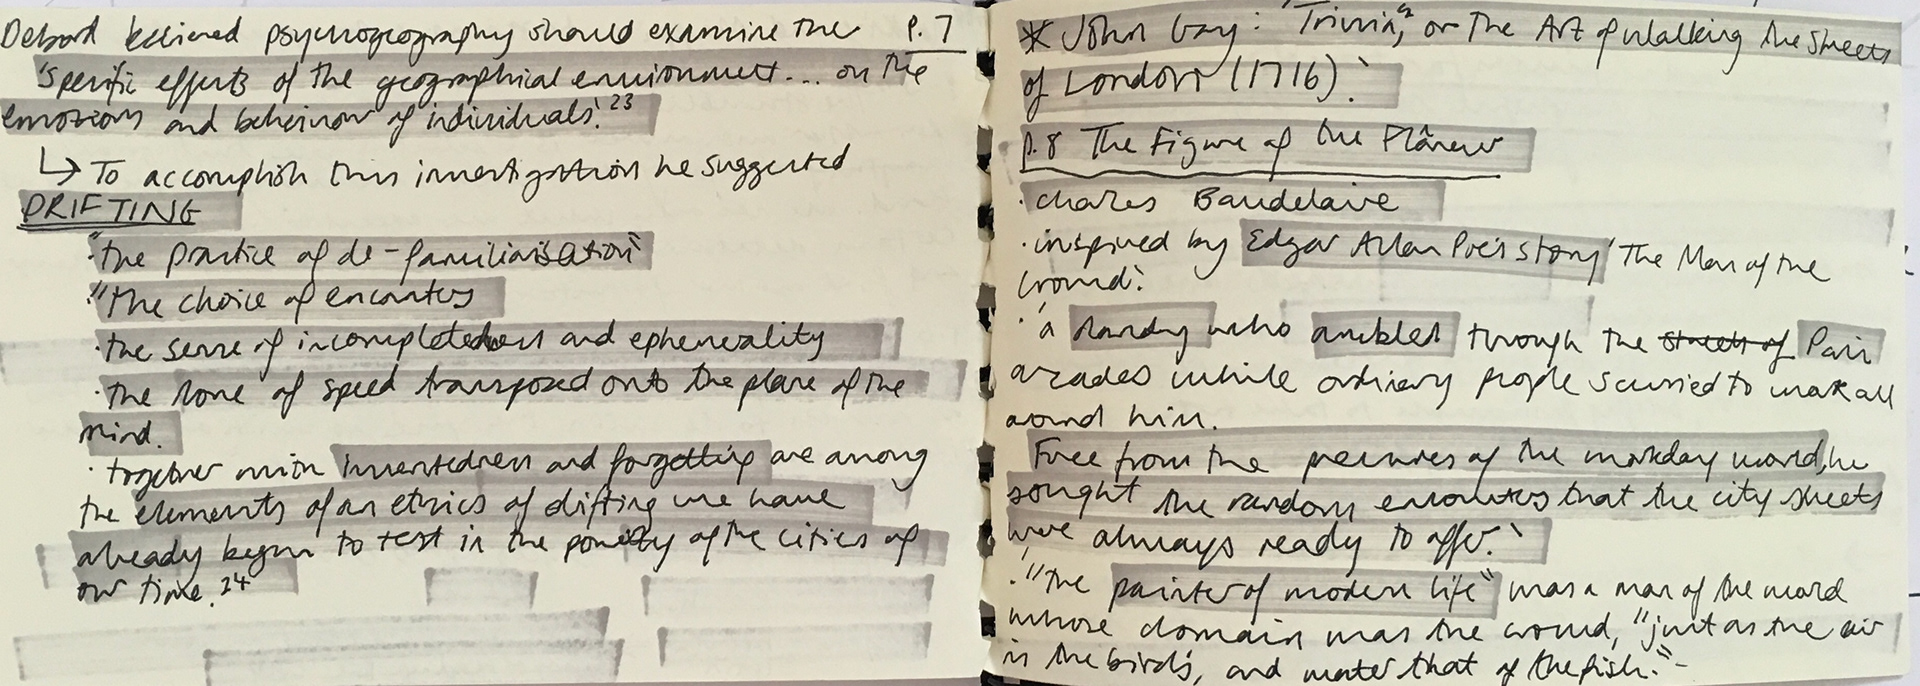 Debord believed psychogeography should examine the P.7
'specific effects of the geographical environment... on the
emotions and behaviour of individuals'.23
↳ To accomplish this investigation he suggested
DRIFTING
· "the practice of de-familiarisation"
· "the choice of encounters
· the sense of incompleteness and ephemerality
· the love of speed transposed onto the plane of the
mind.
· together with inventedness and forgetting are among
the elements of an ethics of drifting we have
already begun to test in the poverty of the cities of
our time.24
* John Gay: 'Trivia, or The Art of Walking the Streets
of London (1716)'
P.8 The Figure of the Flâneur
· Charles Baudelaire
· inspired by Edgar Allan Poe's story 'The Man of the
Crowd'.
· 'a dandy who ambled through the streets of Paris
arcades while ordinary people scurried to work all
around him.
Free from the pressures of the workday world, he
sought the random encounters that the city streets
were always ready to offer.'
· "the painter of modern life" was a man of the world
whose domain was the crowd, "just as the air
is the birds, and water that of the fish." -